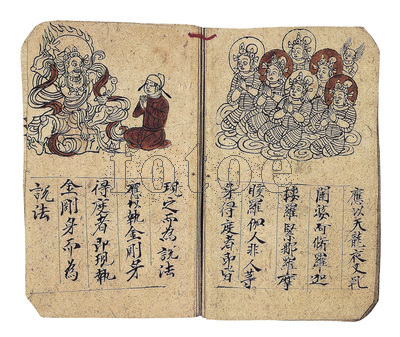 應以天龍夜叉乹
闥婆阿修羅迦
樓羅緊那羅摩
睺羅伽人非人等
身得度者即皆
現之而為說法
應以執金剛身
得度者即現執
金剛身而為
說法
fotoe